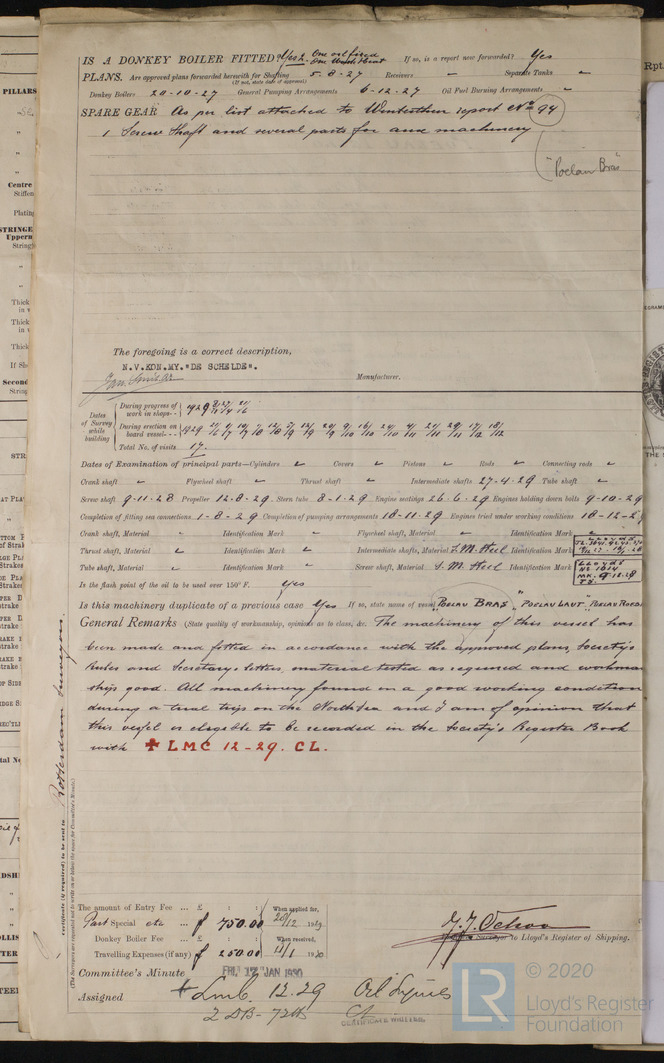 IS A DONKEY BOILER FITTED? Yes 2. One oil fired One Waste Heat If so, is a report now forwarded? Yes
PLANS. Are approved plans forwarded herewith for Shafting 5-8-27 Receivers " Separate Tanks "
(If not, state date of approval)
Donkey Boilers 20-10-27 General Pumping Arrangements 6-12-27 Oil Fuel Burning Arrangements "
SPARE GEAR As per list attached to Winterthur report No 94
1 Screw shaft and several parts for aux machinery
"Poelau Bras"
The foregoing is a correct description,
N.V.KON.MY."DE SCHELDE".
Manufacturer.
Dates of Survey while building
During progress of work in shops-- 1929
During erection on board vessel--- 1929
Total No. of visits 17.
Dates of Examination of principal parts—Cylinders " Covers " Pistons " Rods " Connecting rods "
Crank shaft " Flywheel shaft " Thrust shaft " Intermediate shafts 27-4-29 Tube shaft "
Screw shaft 9-11-28 Propeller 12-8-29. Stern tube 8-1-29 Engine seatings 26-6-29 Engines holding down bolts 9-10-29
Completion of fitting sea connections 1-8-29 Completion of pumping arrangements 18-11-29 Engines tried under working conditions 18-12-29
Crank shaft, Material " Identification Mark " Flywheel shaft, Material " Identification Mark "
Thrust shaft, Material " Identification Mark " Intermediate shafts, Material S.M. Steel Identification Mark
Tube shaft, Material " Identification Mark " Screw shaft, Material S.M. Steel Identification Mark LLOYDS
Is the flash point of the oil to be used over 150° F. Yes
Is this machinery duplicate of a previous case Yes If so, state name of vessel POELAU BRAS, "POELAU LAUT", POELAU ROEBI
General Remarks (State quality of workmanship, opinions as to class, &c. The machinery of this vessel has
been made and fitted in accordance with the approved plans, Society's
Rules and Secretary's letters, material tested as required and workman
ship good. All machinery found in a good working condition
during a trial trip on the North Sea and I am of opinion that
this vessel is eligible to be recorded in the Society's Register Book
with ✠ LMC 12-29. CL.
Certificate (if required) to be sent to Rotterdam Surveyors.
(The Surveyors are requested not to write on or below the space for Committee's Minute.)
The amount of Entry Fee ... £ : : When applied for,
Part Special etc ... ƒ 750.00 20/12 1929
Donkey Boiler Fee ... £ : : When received,
Travelling Expenses (if any) ƒ 250.00 11/1 1930
Surveyor to Lloyd's Register of Shipping.
Committee's Minute FRI. 17 JAN 1930
Assigned + LMC 12.29 Oil Engines
2 DB- 72lb CL
CERTIFICATE WRITTEN
LR © 2020
Lloyd's Register
Foundation